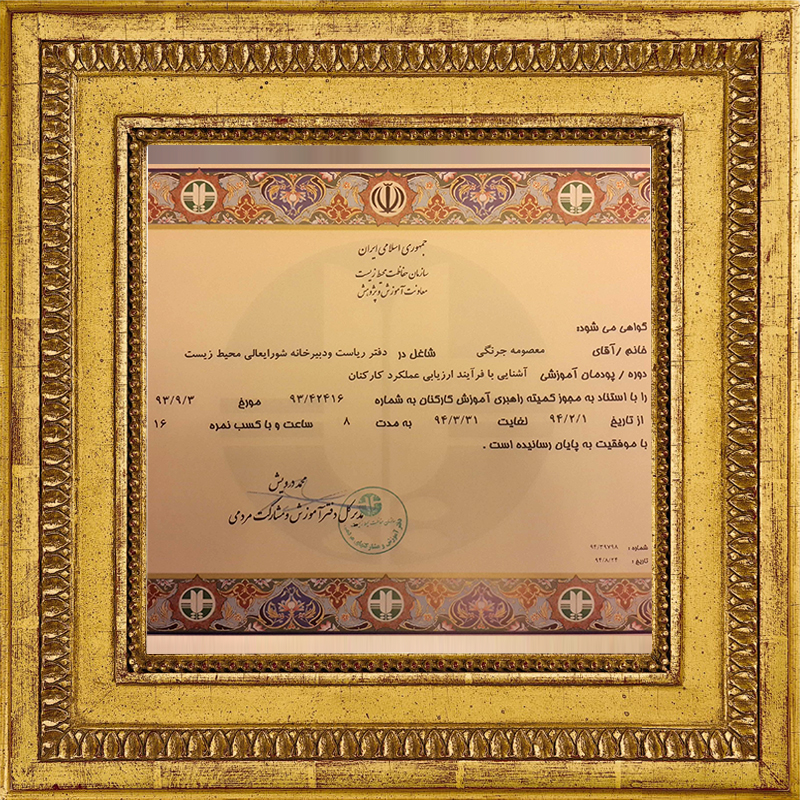 جمهوری اسلامی ایران
سازمان حفاظت محیط زیست
معاونت آموزش و پژوهش
گواهی می شود:
خانم / آقای معصومه جرنگی شاغل در دفتر ریاست ودبیرخانه شورایعالی محیط زیست
دوره / پودمان آموزشی آشنایی با فرآیند ارزیابی عملکرد کارکنان
را با استناد به مجوز کمیته راهبری آموزش کارکنان به شماره ۹۳/۴۲۴۱۶ مورخ ۹۳/۹/۳
از تاریخ ۹۴/۲/۱ لغایت ۹۴/۳/۳۱ به مدت ۸ ساعت و با کسب نمره ۱۶
با موفقیت به پایان رسانیده است .
محمد درویش
مدیر کل دفتر آموزش و مشارکت مردمی
شماره : ۹۴/۳۹۷۹۸
تاریخ : ۹۴/۸/۲۴